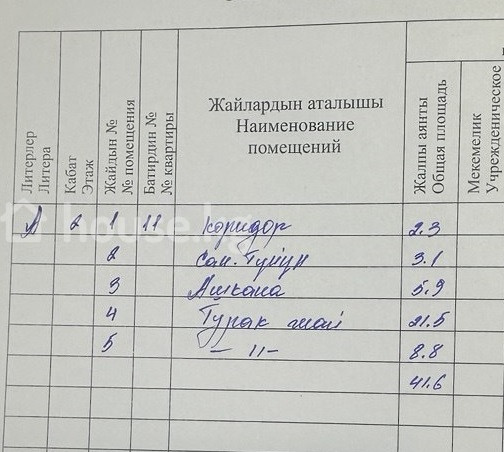 Литерлер
Литера
Кабат
Этаж
Жайдын №
№ помещения
Батирдин №
№ квартиры
Жайлардын аталышы
Наименование
помещений
Жалпы аянты
Общая площадь
Мекемелик
Учрежденическое
house.kg
А 2 1 11 коридор 2.3
2 Сан. Түйүн 3.1
3 Ашкана 5.9
4 Турак жай 21.5
5 — 11 — 8.8
41.6